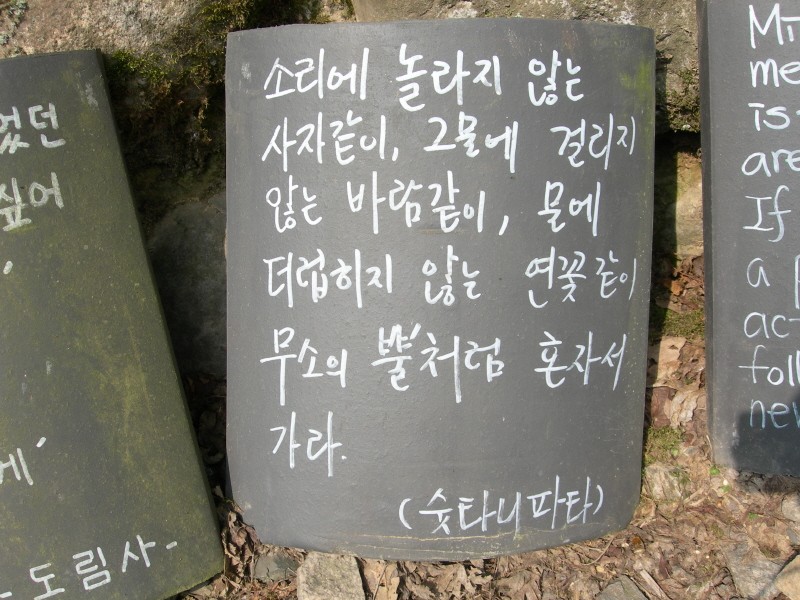 소리에 놀라지 않는
사자같이, 그물에 걸리지
않는 바람같이, 물에
더럽히지 않는 연꽃같이
무소의 뿔처럼 혼자서
가라.
(숫타니파타)
싶어
- 도림사 -
is
are
If
a